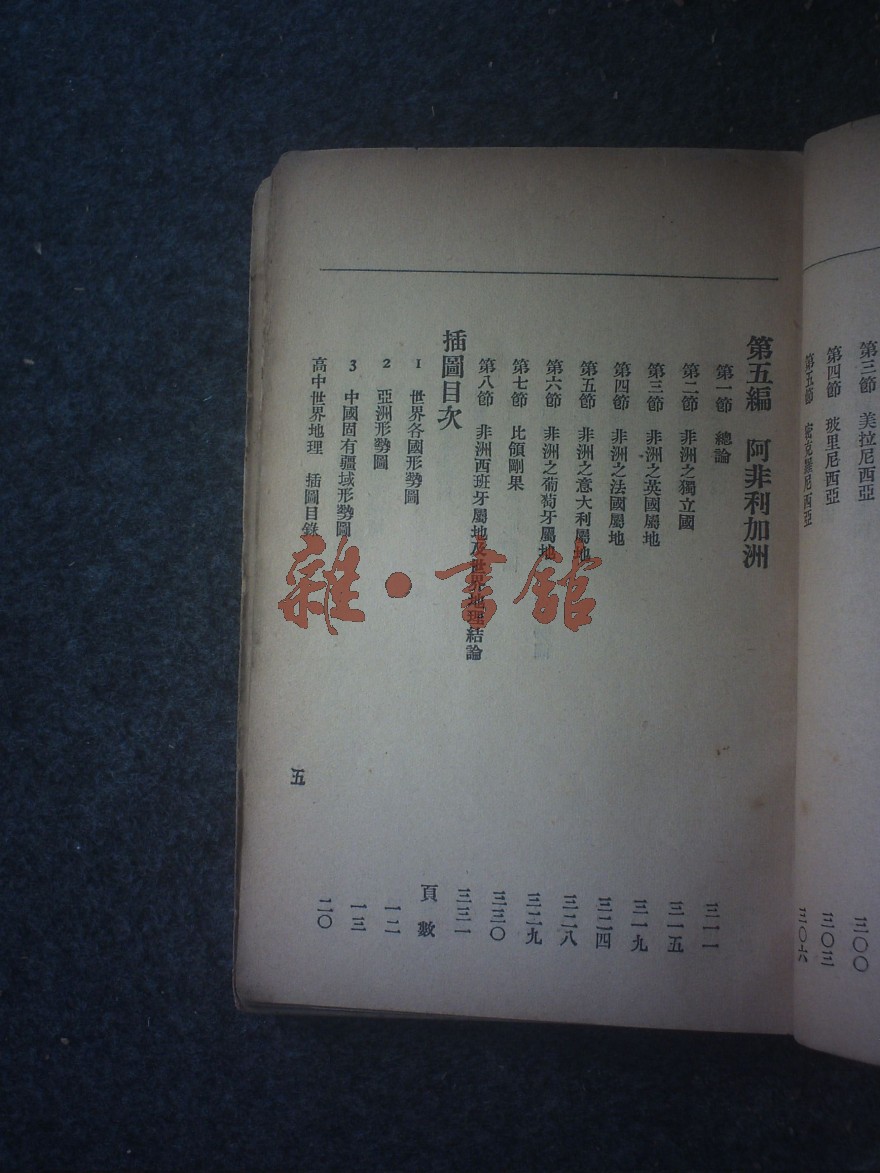 第三節 美拉尼西亞 三〇〇
第四節 玻里尼西亞 三〇三
第五節 密克羅尼西亞 三〇六
第五編 阿非利加洲
第一節 總論 三一一
第二節 非洲之獨立國 三一五
第三節 非洲之英國屬地 三一九
第四節 非洲之法國屬地 三二四
第五節 非洲之意大利屬地 三二八
第六節 非洲之葡萄牙屬地 三二九
第七節 比領剛果 三三〇
第八節 非洲西班牙屬地及世界地理結論 三三一
插圖目次 頁數
1 世界各國形勢圖 一二
2 亞洲形勢圖 一三
3 中國固有疆域形勢圖 二〇
高中世界地理 插圖目錄 五
雜·書館